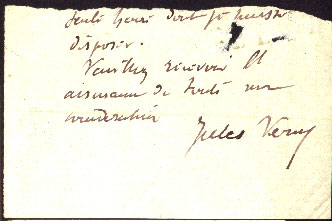 seule heure dont je puisse
disposer.
Veuillez recevoir
de toute ma
considération
Jules Verne